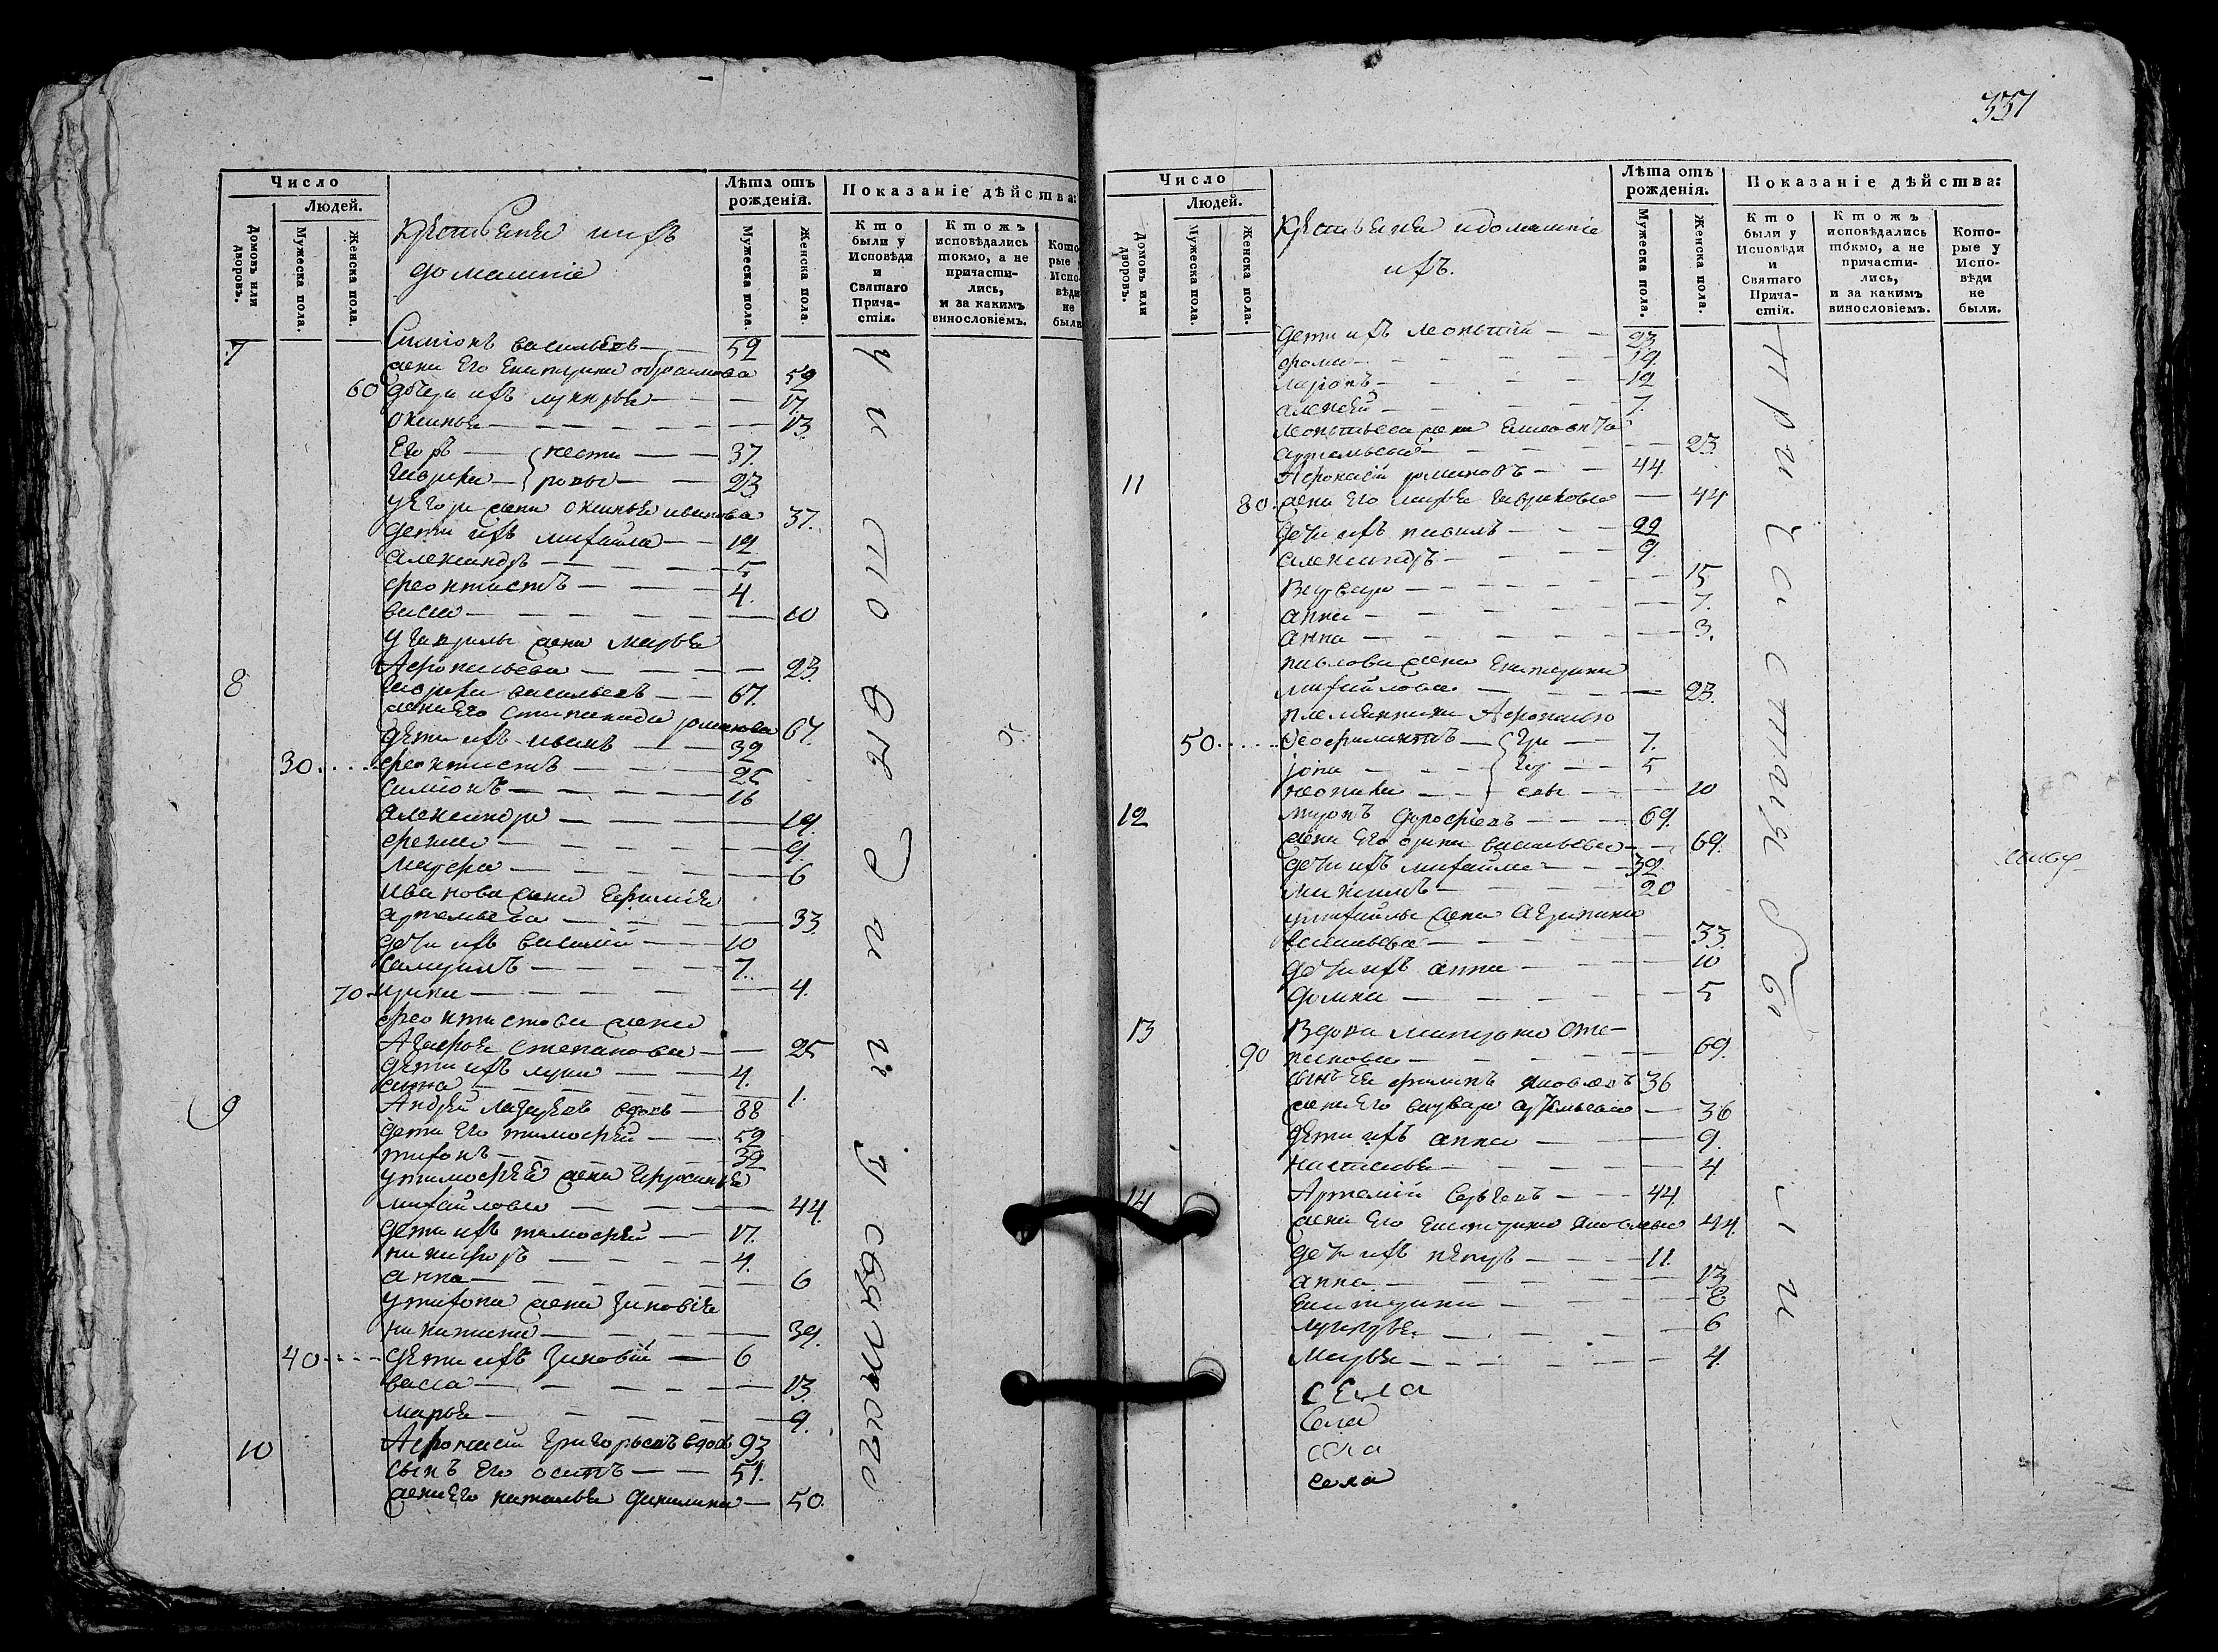 Число
Людей.
Домовъ или дворовъ.
Мужеска пола.
Женска пола.
крестьяне и ихъ
домашние
Лѣта отъ рожденія.
Мужеска пола.
Женска пола.
Показаніе дѣйства:
Кто были у Исповѣди и Святаго Причастія.
Ктожъ исповѣдались токмо, а не причастились, и за какимъ винословіемъ.
Которые у Исповѣди не были
7 Симионъ васильевъ 59
жена Его Екатерина 59
60 дочери ихъ лукерья 17.
оксинья 13.
Егоръ 37.
Гаврила 23
у Егора жена оксинья иванова 37.
дети ихъ михаила 12
александръ 5
феоктистъ 4.
васса 10
у гаврилы жена марья
Афонасьева 23.
8 Гаврила васильевъ 67.
жена Его степанида романова 67.
дети ихъ иванъ 39
30 феоктистъ 25
Симионъ 16
александра 19.
9.
6
иванова жена Ефимия
артемьева 33.
дети ихъ василий 10
самуилъ 7.
70 ирина 4.
феоктистова жена
Агафья степанова 25
дети ихъ лука 4.
анна 1.
9 Андрей вдовъ 88
дети Его тимофей 59
тихонъ 39
у тимофея жена
михайлова 44.
дети ихъ тимофей 17.
никифоръ 4.
анна 6
у тихона жена Зиновия
никитина 39.
40 дети ихъ Зиновий 6
васса 13.
марья 9.
10 Афонасий Григорьевъ вдовъ 93
сынъ Его осипъ 51.
жена Его наталья данилина 50.
337
Число
Людей.
Домовъ или дворовъ.
Мужеска пола.
Женска пола.
крестьяне и домашние
ихъ.
Лѣта отъ рожденія.
Мужеска пола.
Женска пола.
Показаніе дѣйства:
Кто были у Исповѣди и Святаго Причастія.
Ктожъ исповѣдались токмо, а не причастились, и за какимъ винословіемъ.
Которые у Исповѣди не были.
дети ихъ леонтий 23.
фома 19.
ларионъ 12
алексей 7.
леонтьева жена
артемьева 23.
11 Афонасий романовъ 44.
80. жена Его марья гаврилова 44
дети ихъ павилъ 22
александръ 9.
варвара 15
анна 7.
анна 3.
павлова жена Екатерина
михайлова 23.
племянники Афонасью
50 феофилактъ 7.
иона 5
10
12 69.
жена Его васильева 69.
дети ихъ михаила 32
максимъ 20
у михаилы жена
васильева 33.
дети ихъ анна 10
домна 5
13 Вдова матрона сте-
90 панова 69.
сынъ Ея филипъ яковлевъ 36
жена Его варвара артемьева 36
дети ихъ анна 9.
настасья 4
14 Артемий 44.
жена Его Екатерина яковлева 44.
дети ихъ петръ 11.
анна 13
Екатерина 8
лукерья 6
марья 4.
села
села
села
села